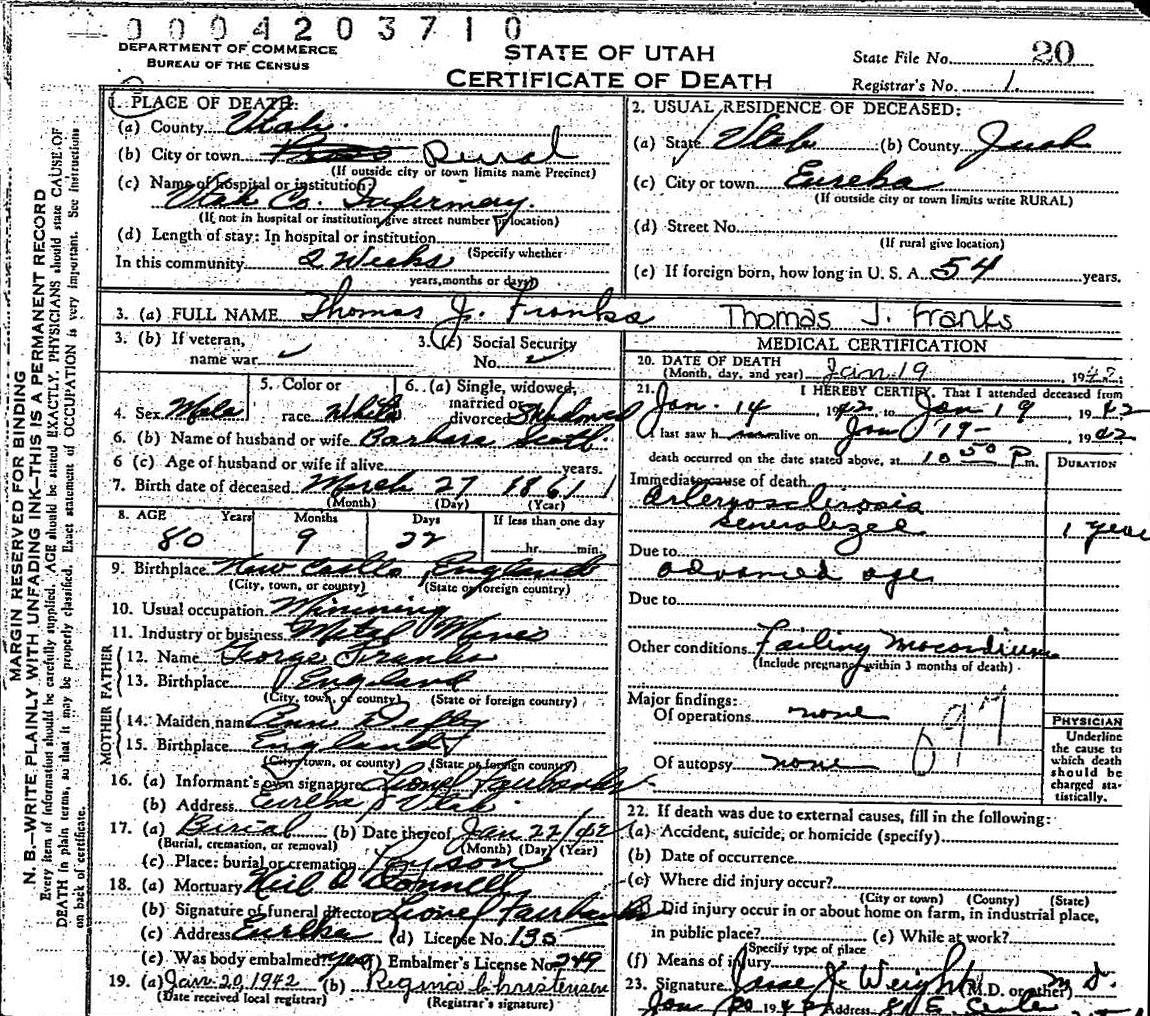 0004203710
DEPARTMENT OF COMMERCE
BUREAU OF THE CENSUS
STATE OF UTAH
CERTIFICATE OF DEATH
State File No. 20
Registrar's No. 1.
MARGIN RESERVED FOR BINDING
N. B.—WRITE PLAINLY WITH UNFADING INK—THIS IS A PERMANENT RECORD
Every item of information should be carefully supplied. AGE should be stated EXACTLY. PHYSICIANS should state CAUSE OF
DEATH in plain terms, so that it may be properly classified. Exact statement of OCCUPATION is very important. See instructions
on back of certificate.
1. PLACE OF DEATH:
(a) County Utah
(b) City or town Provo Rural
(If outside city or town limits name Precinct)
(c) Name of hospital or institution:
Utah Co. Infermery.
(If not in hospital or institution give street number or location)
(d) Length of stay: In hospital or institution
(Specify whether
In this community 2 Weeks
years, months or days)
2. USUAL RESIDENCE OF DECEASED:
(a) State Utah (b) County Juab
(c) City or town Eureka
(If outside city or town limits write RURAL)
(d) Street No.
(If rural give location)
(e) If foreign born, how long in U. S. A. 54 years.
3. (a) FULL NAME Thomas J. Franks Thomas J. Franks
3. (b) If veteran,
name war
3. (c) Social Security
No.
4. Sex Male
5. Color or
race White
6. (a) Single, widowed,
married or
divorced Widowed
6. (b) Name of husband or wife Barbara Scott
6 (c) Age of husband or wife if alive years.
7. Birth date of deceased March 27 1861
(Month) (Day) (Year)
8. AGE Years Months Days If less than one day
80 9 22 hr. min.
9. Birthplace New Castle England
(City, town, or county) (State or foreign country)
10. Usual occupation Minining
11. Industry or business Metal Mines
FATHER
12. Name George Franks
13. Birthplace England
(City, town, or county) (State or foreign country)
MOTHER
14. Maiden name Anne
15. Birthplace England
(City, town, or county) (State or foreign country)
16. (a) Informant's own signature Lionel Fairbanks
(b) Address Eureka Utah
17. (a) Burial (b) Date thereof Jan 22/42
(Burial, cremation, or removal) (Month) (Day) (Year)
(c) Place: burial or cremation Payson
18. (a) Mortuary Neil O Donnell
(b) Signature of funeral director Lionel Fairbanks
(c) Address Eureka (d) License No. 135
(e) Was body embalmed? yes (f) Embalmer's License No. 249
19. (a) Jan. 20, 1942 (b) Regina Christensen
(Date received local registrar) (Registrar's signature)
MEDICAL CERTIFICATION
20. DATE OF DEATH
(Month, day, and year) Jan 19, 1942.
21. I HEREBY CERTIFY, That I attended deceased from
Jan. 14 1942 to Jan 19 1942
I last saw h alive on Jan 19 - , 1942
death occurred on the date stated above, at 10 50 P.m.
DURATION
Immediate cause of death
Arteryosclirosis
Generalized 1 year
Due to
advanced age
Due to
Other conditions Failing Mocordium
(Include pregnancy within 3 months of death)
Major findings:
Of operations none
Of autopsy none
097
PHYSICIAN
Underline
the cause to
which death
should be
charged sta-
tistically.
22. If death was due to external causes, fill in the following:
(a) Accident, suicide, or homicide (specify)
(b) Date of occurrence
(c) Where did injury occur?
(City or town) (County) (State)
Did injury occur in or about home on farm, in industrial place,
in public place? (e) While at work?
(Specify type of place
(f) Means of injury
23. Signature Weight M.D.
(M.D. or other)
Jan 20 1942 Address E. Center